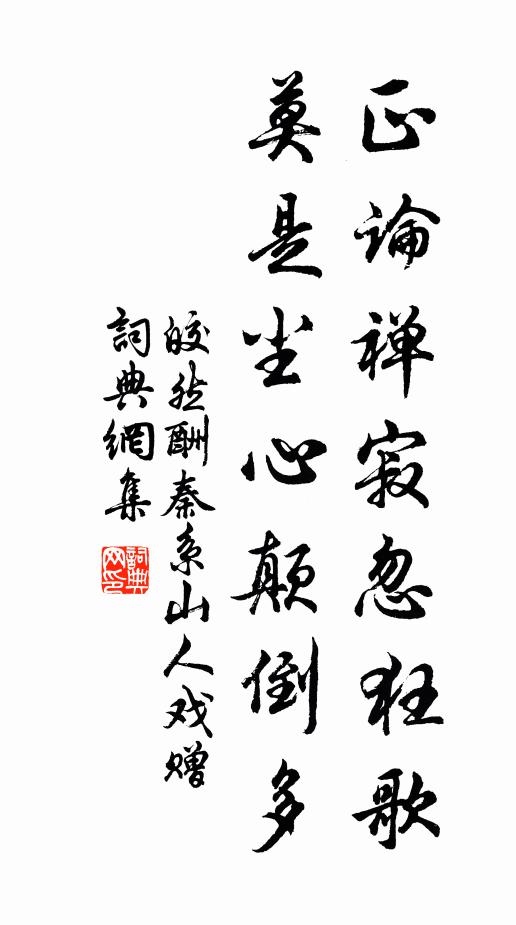 正論禅寂忽狂歌
莫是尘心颠倒多
皎然酬秦系山人戏赠
詞典網集
詞典网印